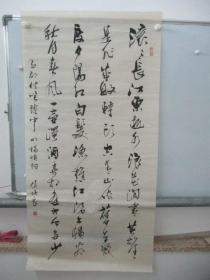 滚〻長江東逝水浪花淘盡英雄
是非成敗轉頭空青山依舊在幾
度夕陽紅白髮漁樵江渚上慣看
秋月春風一壺濁酒喜相逢古今多少
事都付笑談中 楊慎詞